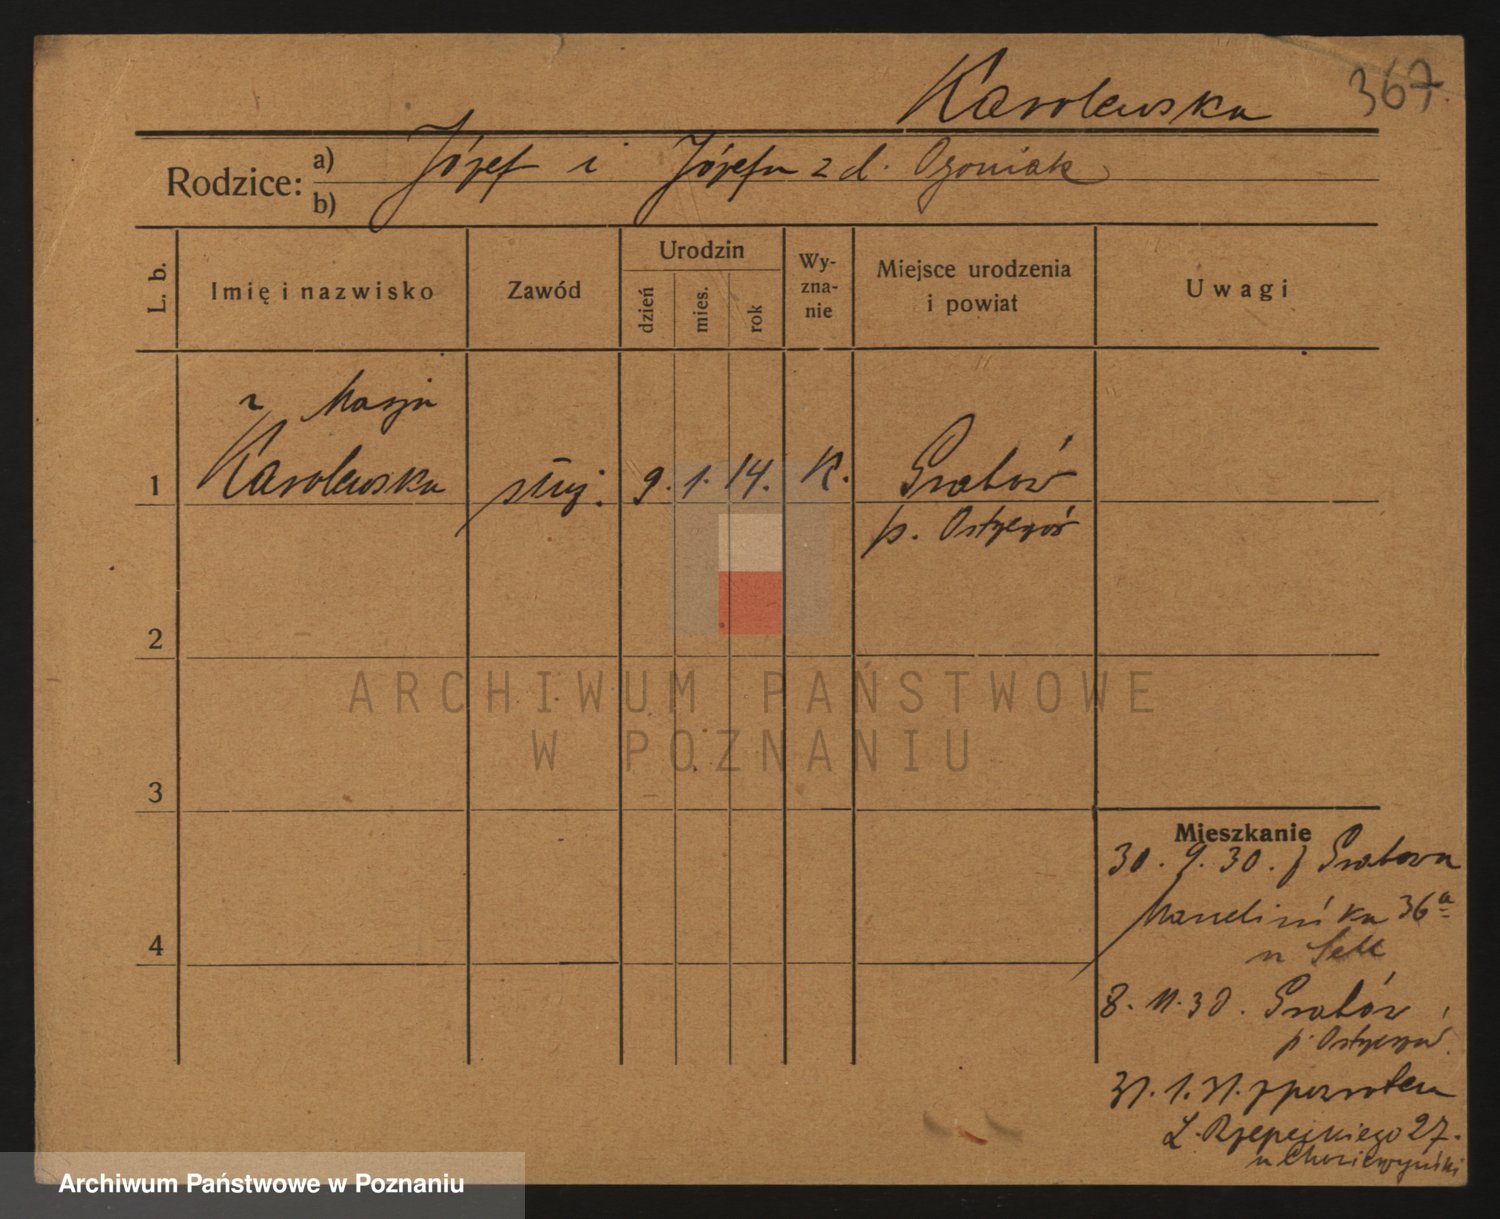 Karolewska 367.
Rodzice: a) Józef i Józefa z d. Ozoniak
b)
L. b. Imię i nazwisko Zawód Urodzin dzień mies. rok Wy-zna-nie Miejsce urodzenia i powiat Uwagi
Marja
1 Karolewska służ. 9. 1. 14. K. Grabów
p. Ostrzeszów
2
3
4
Mieszkanie
30. 9. 30. z Grabowa
Marcelińska 36a
u
8. 11. 30. Grabów
p. Ostrzeszów
31. 1. 31. z powrotem
Rzepeckiego 27.
u
ARCHIWUM PAŃSTWOWE
W POZNANIU
Archiwum Państwowe w Poznaniu